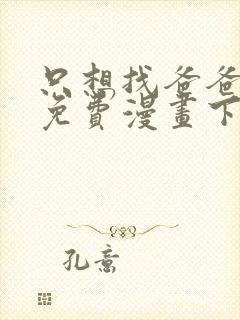 只想找爸爸
免費漫畫下
孔意